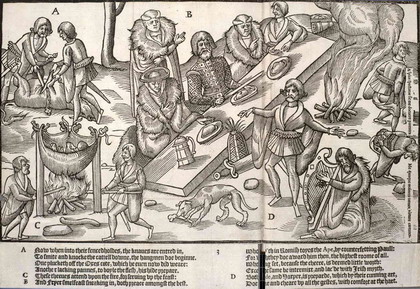 A
B
C
D
A Now when into their fenced holdes, the knaues are entred in,
To smite and knocke the cattell downe, the hangmen doe beginne.
One plucketh off the Oxes cote, which he euen now did weare:
Another lacking pannes, to boyle the flesh, his hide prepare.
C These theeues attend upon the fire, for seruing up the feast:
B And Fryer smelfeast sneaking in, both preace amongst the best.
3 in Romish toyes the Ape, by counterfetting Paull:
For they doe award him then, the highest roome of all.
being set, because the cheere, is deemed little worth:
the same be intermixt, and lac'de with Irish myrth.
D and Harper, is preparde, which by their cunning art,
and cheare up all the gestes, with comfort at the hart.